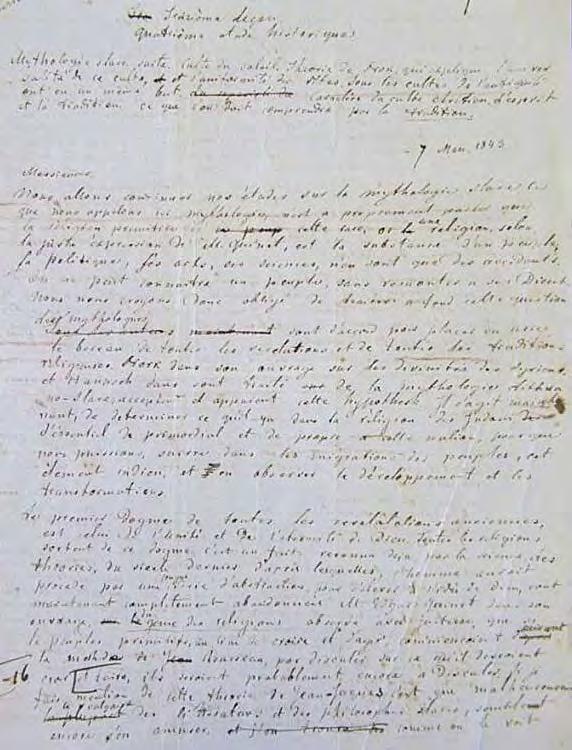 Seizième leçon
quatrième étude historique
Mythologie slave, suite. Culte du soleil. Théorie de Nork, qui explique l'univer
salité de ce culte, et l'uniformité des fêtes. Tous les cultes de l'antiquité
ont eu un même but. Caractère du culte chrétien. L'esprit
et la tradition. Ce que l'on doit comprendre par la tradition.
7 1843
Messieurs,
Nous allons continuer nos études sur la mythologie slave. Ce
que nous appelons ici mythologie, n'est à proprement parler que
la religion primitive de cette race, or la religion, selon
la juste expression de M. Quinet, est la substance d'un peuple,
la politique, les arts, les sciences, n'en sont que des accidents.
On ne peut connaître un peuple, sans remonter à son Dieu et
nous nous croyons donc obligé de à fond cette question
des mythologies
sont d'accord pour placer en
le berceau de toutes les révélations et de toutes les traditions
religieuses. Nork dans son ouvrage sur les divinités des Syriens,
et Hanusch dans son traité de la mythologie
-slave, acceptent et appuient cette hypothèse. Il s'agit mainte
nant, de déterminer ce qu'il y a dans la religion des
d'essentiel de primordial et de propre à cette nation, pour que
nous puissions, suivre dans les émigrations des peuples, cet
élément indien, et en observer le développement et les
transformations.
Le premier dogme de toutes les révélations anciennes,
est celui de l'unité et de l'éternité de Dieu. Toutes les religions
sortent de ce dogme, c'est un fait, reconnu déjà par la science. Les
théories, du siècle dernier d'après lesquelles, l'homme aurait
procédé par une voie d'abstraction, pour s'élever à l'idée de Dieu, sont
maintenant complètement abandonnées. M. Edgar Quinet dans son
ouvrage, le génie des religions observe avec justesse, que si
le peuple primitif, au lieu de croire et d'agir, commençaient
la méthode de Rousseau, par discuter sur ce qu'il devraient
croire et faire, ils seraient probablement encore à discuter. Si je
fais mention de cette théorie de Jean Jacques c'est que malheureusement
des littérateurs et des philosophes slaves, semblent
encore s'en amuser, comme on le voit
-16